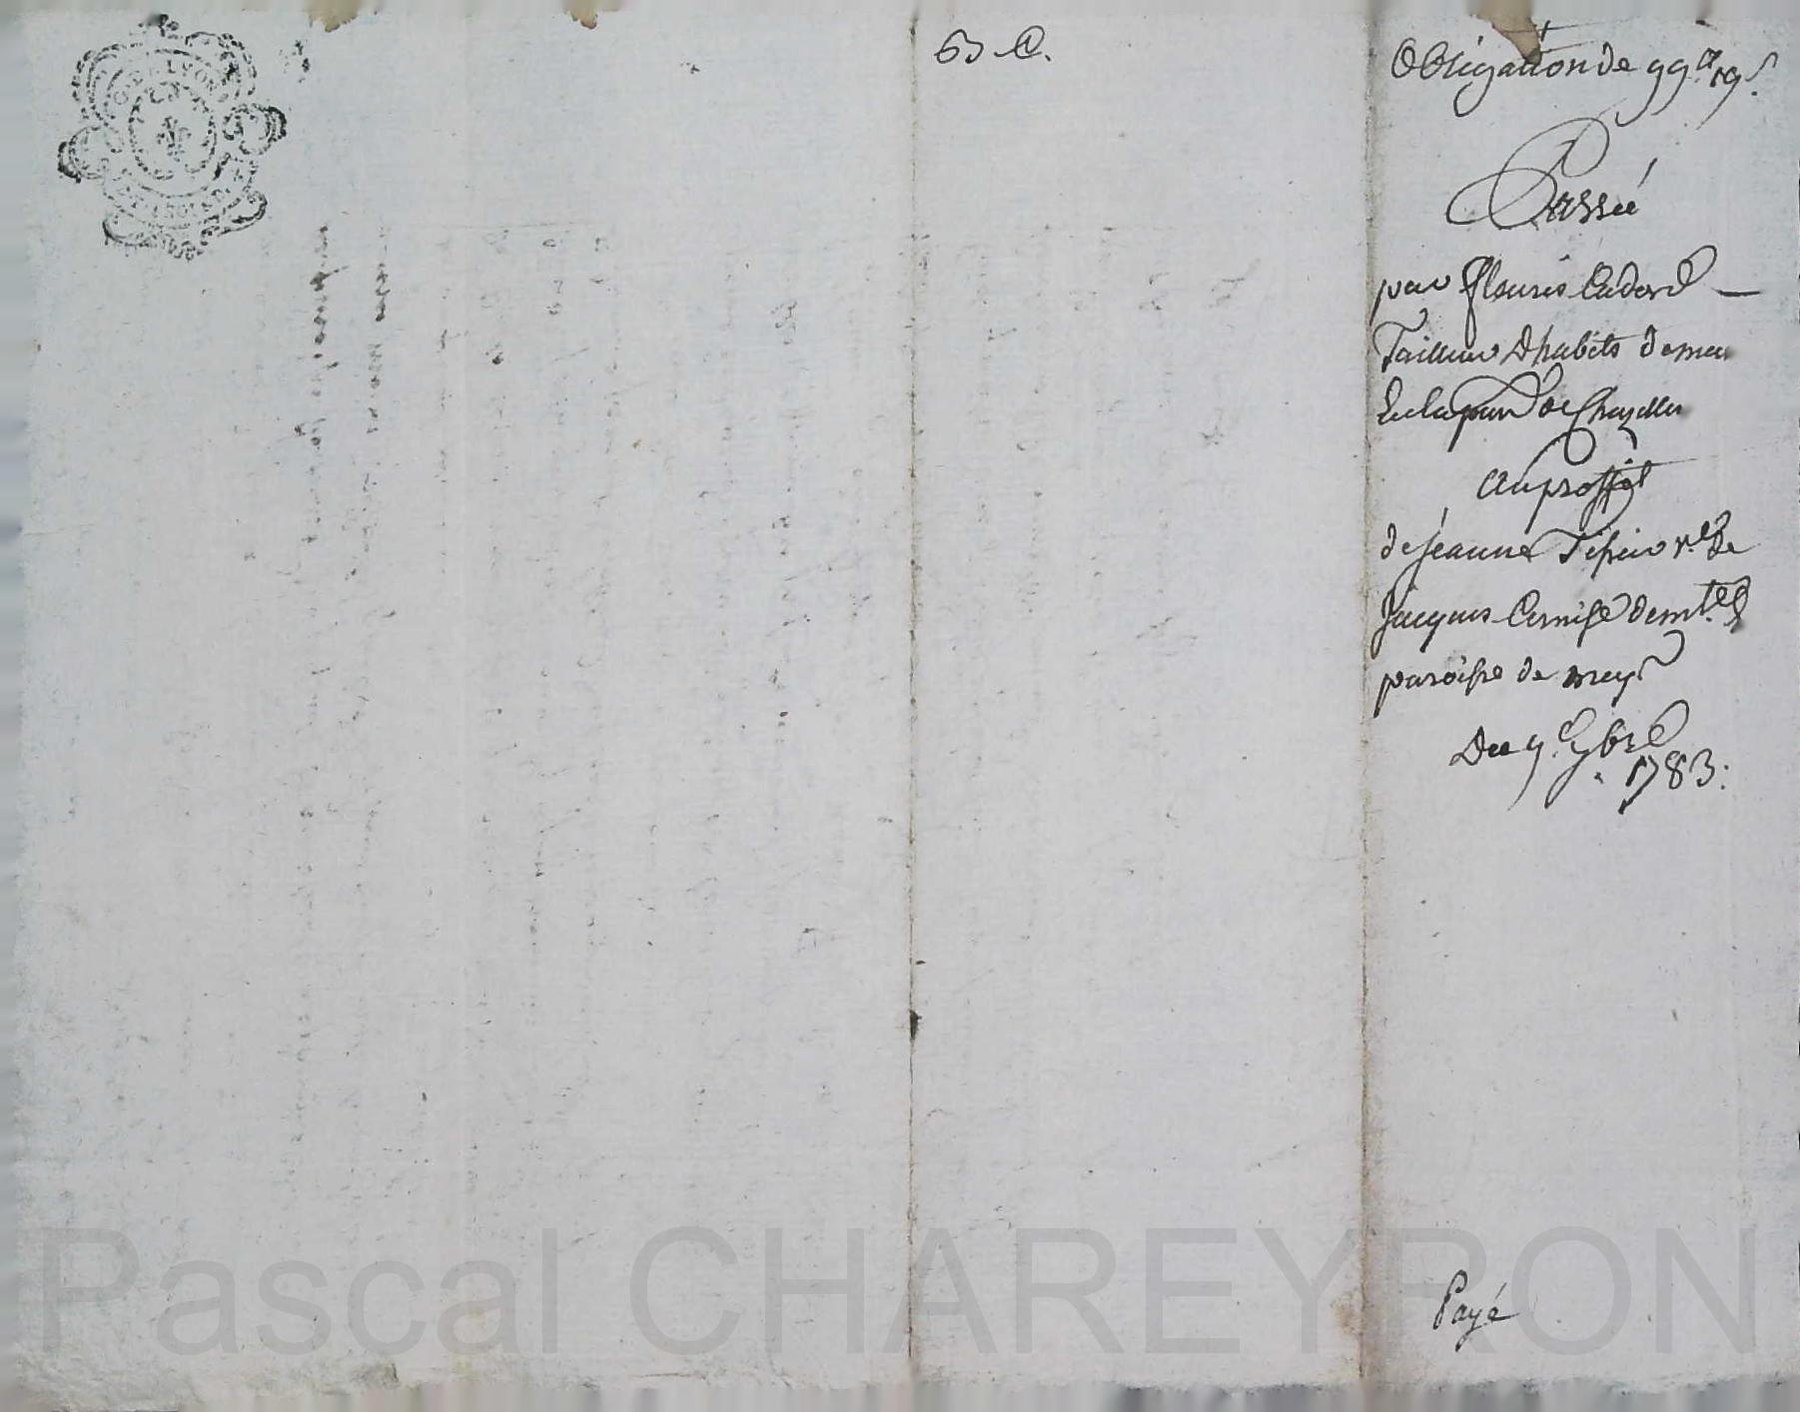 63 C.
Obligation de 99# 19s.
Passée
par fleuris Cadord
Tailleur Dhabits demeu
En la par de Chazelles
Au proffit
de jeanne Vve de
jacques demt.
paroisse de meys
Du 9e. 9bre
1783.
Payé
Pascal CHAREYRON